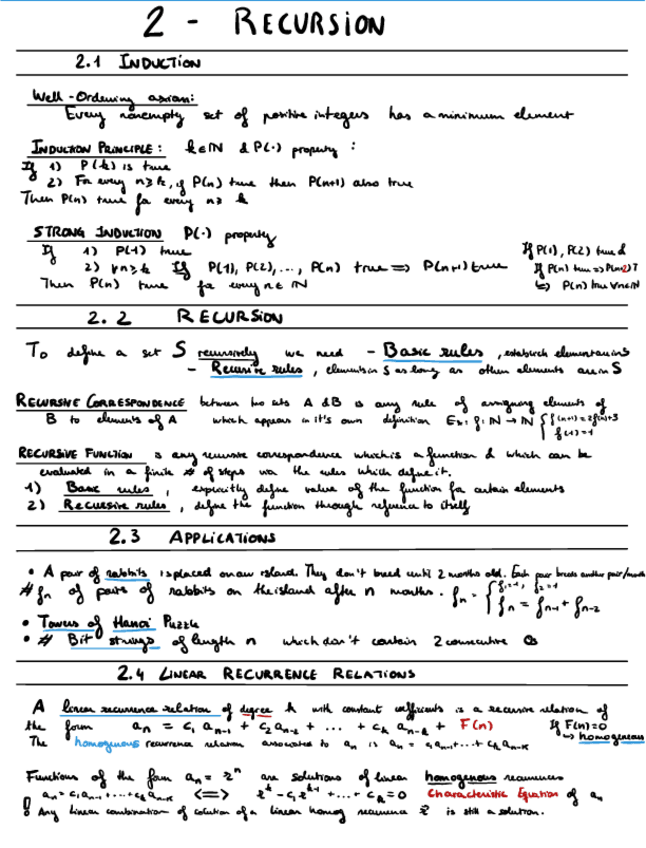 2 - RECURSION
2.1 INDUCTION
Well-Ordering axiom:
Every nonempty set of positive integers has a minimum element
INDUCTION PRINCIPLE: k∈ℕ & P(·) property :
If 1) P(k) is true
2) For every n≥k, if P(n) true then P(n+1) also true
Then P(n) true for every n≥ k
STRONG INDUCTION P(·) property
If 1) P(1) true
2) ∀n≥k If P(1), P(2), ..., P(n) true ⟹ P(n+1) true
Then P(n) true for every n∈ ℕ
If P(1), P(2) true &
If P(n) true ⟹ P(n+2) T
↳ P(n) true ∀n∈ℕ
2.2 RECURSION
To define a set S recursively we need - Basic rules , establish elements in S
- Recursive rules , elements in S as long as other elements are in S
RECURSIVE CORRESPONDENCE between two sets A & B is any rule of assigning elements of
B to elements of A which appears in it's own definition Ex: f: ℕ → ℕ { f(n+1) = 2f(n)+3
f(1)=1
RECURSIVE FUNCTION is any recursive correspondence which is a function & which can be
evaluated in a finite # of steps via the rules which define it.
1) Basic rules , explicitly define value of the function for certain elements
2) Recursive rules , define the function through reference to itself
2.3 APPLICATIONS
• A pair of rabbits is placed on an island. They don't breed until 2 months old. Each pair breeds another pair/month
# fn of pairs of rabbits on the island after n months. fn = { f1=1, f2=1
fn = fn-1 + fn-2
• Towers of Hanoi Puzzle
• # Bit strings of length n which don't contain 2 consecutive 0s
2.4 LINEAR RECURRENCE RELATIONS
A linear recurrence relation of degree k with constant coefficients is a recursive relation of
the form an = c1 an-1 + c2 an-2 + ... + ck an-k + F(n) If F(n)=0
↳ homogeneous
The homogenous recurrence relation associated to an is an = c1 an-1 + ... + ck an-k
Functions of the form an = rⁿ are solutions of linear homogenous recurrences
an = c1 an-1 + ... + ck an-k <=> r^k - c1 r^k-1 + ... + ck = 0 Characteristic Equation of an
! Any linear combination of solution of a linear homog recurrence is still a solution.